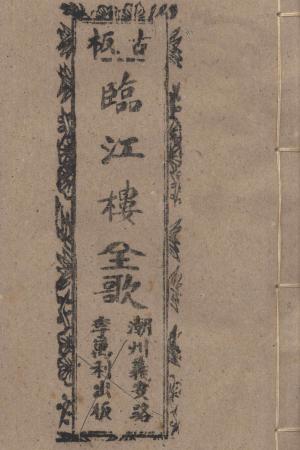 古板
臨江樓全歌
潮州義安路
李萬利出版